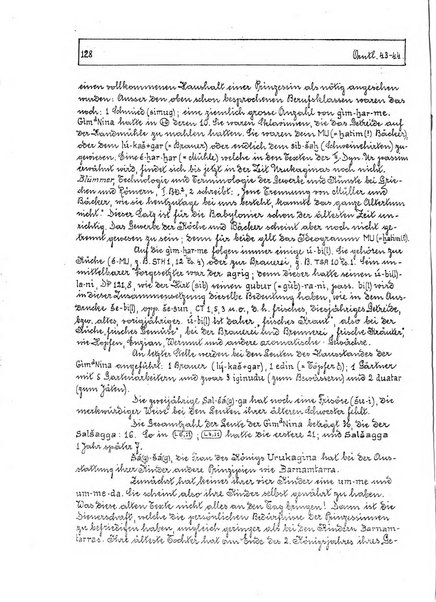 128 Orient. 43-44
einen vollkommenen Haushalt einer Prinzessin als nötig angesehen
wurden: Ausser den oben schon besprochenen Berufsklassen waren das
noch: 1 Schmied (simug); eine ziemlich grosse Anzahl von gim-har-me.
Gim dNina hatte in deren 10. Sie waren Sklavinnen, die das Getreide auf
der Handmühle zu mahlen hatten. Sie waren dem MU (= ḫatim (?) Bäcker),
oder dem lú-kaš+gar (= Brauer) oder endlich dem sib-šáḫ (Schweinehirten) zu-
gewiesen. Eine é-har-har (= Mühle) welche in den Texten der I. Dyn. Ur passim
erwähnt wird, findet sich bis jetzt in der Zeit Urukaginas noch nicht.
Blümmer, Technologie und Terminologie der Gewerbe und Künste bei Grie-
chen und Römern, I 2 schreibt: "Jene Trennung von Müller und
Bäcker, wie sie heutzutage bei uns besteht, kannte das ganze Altertum
nicht." Dieser Satz ist für die Babylonier schon der ältesten Zeit un-
richtig. Das Gewerbe der Köche und Bäcker scheint aber noch nicht ge-
trennt gewesen zu sein; denn für beide gilt das Ideogramm MU (= ḫatim?).
Auf die gim-har-me folgen immer einige ú-bi(l). Sie gehören zur
Küche (é-MU, z.B. STH 1, 12 u. 5) oder zur Brauerei, z.B. TSA 10 u. 1. Sein un-
mittelbarer Vorgesetzter war der agrig, denn dieser hatte seinen ú-bi(l)-
la-ni, DP 121,8, wie der Hirt (sib) seinen gubur (= gùb)-ra-ni, pass. bi(l) wird
in dieser Zusammensetzung dieselbe Bedeutung haben, wie in dem Aus-
drucke še-bi(l), opp. še-sun, CT 1, 5, 3 u. ö., d.h. frisches, diesjähriges Getreide,
ggw. altes, vorjähriges. ú-bi(l) ist daher "frisches Kraut", also bei der
Küche "frisches Gemüse", bei der Brauerei und Brennerei, "frische Kräuter",
wie Hopfen, Enzian, Wermut und andere aromatische Gewächse.
An letzter Stelle werden bei den Leuten des Hausstandes der
Gim dNina angeführt: 1 Brauer (lú-kaš+gar), 1 edin (= Töpfer?); 1 Gärtner
mit 5 Gartenarbeitern und zwar 3 iginudu (zum Bewässern) und 2 duatar
(zum Jäten).
Die zweijährige Sal-šá(g)-ga hat noch eine Frisöre (šu-i), die
merkwürdiger Weise bei den Leuten ihrer älteren Schwester fehlt.
Die Gesamtzahl der Leute der Gim dNina beträgt 36, die der
Salšagga: 16. So in ; hatte die erstere 21; und Salšagga
1 Jahr später 7.
Šá(g)-šá(g), die Frau des Königs Urukagina hat bei der Aus-
stattung ihrer Kinder andere Prinzipien wie Barnamtarra.
Zunächst hat keiner ihrer vier Kinder eine um-me und
um-me-da. Sie scheint also ihre Kinder selbst genährt zu haben.
Was diese alten Texte nicht alles an den Tag bringen! Dann ist die
Dienerschaft, welche die persönlichen Bedürfnisse der Prinzessinnen
zu befriedigen haben, ungleich geringer als bei den Kindern Barnam-
tarras. Ihre älteste Tochter hat am Ende des 2. Königsjahres ihres Ge-